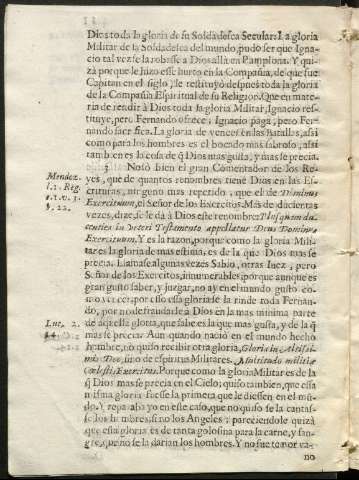 Dios toda la gloria de su Soldadesca Secular: La gloria
Militar de la Soldadesca del mundo, pudo ser que Igna-
cio tal vez se la robasse a Dios allà en Pamplona. Y qui-
zà porque le hizo esse hurto en la Compañia, de que fue
Capitan en el siglo, le restituyò despues toda la gloria
de la Compañia Espiritual de su Religion. Que en mate-
ria de rendir à Dios toda la gloria Militar, Ignacio res-
tituye, pero Fernando ofrece; Ignacio paga, pero Fer-
nando sacrifica. La gloria de vencer en las Batallas, assi
como para los hombres es el bocado mas sabroso, assi
tambien es la cosa de q̃ Dios mas gusta, y mas se precia.
Notò bien el gran Comentador de los Re-
yes, que de quantos renombres tiene Dios en las Es-
crituras, ninguno mas repetido que el de Dominus
Exercituum, el Señor de los Exercitos. Mas de ducientas
vezes, dize, se le dà à Dios este renombre: Plusquam du-
centies in Veteri Testamento appellatur Deus Dominus
Exercituum. Y es la razon, porque como la gloria Mili-
tar es la gloria de mas estima, es de la que Dios mas se
precia. Llamase algunas vezes Sabio, otras Iuez, pero
Señor de los Exercitos, innumerables: porque aunque es
gran gusto saber, y juzgar, no ay en el mundo gusto co-
mo vencer: por esso essa gloria se la rinde toda Fernan-
do, por no defraudarle à Dios en la mas minima parte
de aquessa gloria, que sabe es la que mas gusta, y de la q̃
mas se precia. Aun quando naciò en el mundo hecho
hombre, no quiso recibir otra gloria, Gloria in Altissi-
mis Deo, sino de espiritus Militares. Multitudo militiæ
cælestis, Exercitus. Porque como la gloria Militar es de la
q̃ Dios mas se precia en el Cielo; quiso tambien, que essa
misma gloria fuesse la primera que le diessen en el mũ-
do. Y reparaba yo en este caso, que no quiso se la cantas-
sen los hombres, sino los Angeles; pareciendole quizà
que essa gloria es de tanta golosina para la carne, y san-
gre, que no se la darian los hombres. Y no fue temor va-
no
Mendoz.
l. 1. Reg.
Luc. 2.